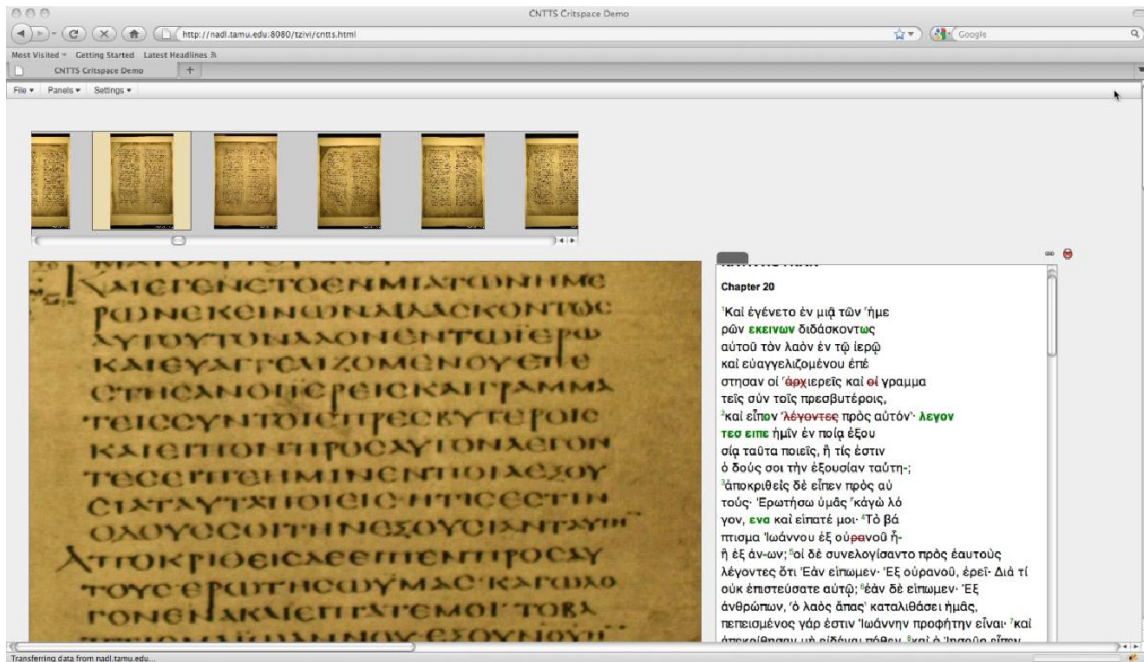 CNTTS Critspace Demo
http://nadl.tamu.edu:8080/tzivi/cntts.html
Google
Most Visited Getting Started Latest Headlines
CNTTS Critspace Demo +
File Panels Settings
ΡΩΝΕΚΕΙΝΩΝΔΙΔΑΣΚΟΝΤΩΣ
ΑΥΤΟΥΤΟΝΛΑΟΝΕΝΤΩΙΕΡΩ
ΚΑΙΕΥΑΓΓΕΛΙΖΟΜΕΝΟΥΕΠΕ
ΣΤΗΣΑΝΟΙΙΕΡΕΙΣΚΑΙΓΡΑΜΜΑ
ΤΕΙΣΣΥΝΤΟΙΣΠΡΕΣΒΥΤΕΡΟΙΣ
ΚΑΙΕΙΠΟΝΠΡΟΣΑΥΤΟΝΛΕΓΟΝ
ΤΕΣΕΙΠΕΗΜΙΝΕΝΠΟΙΑΕΞΟΥ
ΣΙΑΤΑΥΤΑΠΟΙΕΙΣΗΤΙΣΕΣΤΙΝ
ΑΠΟΚΡΙΘΕΙΣΔΕΕΙΠΕΝΠΡΟΣΑΥ
ΤΟΥΣΕΡΩΤΗΣΩΥΜΑΣΚΑΓΩΛΟ
ΓΟΝΕΝΑΚΑΙΕΙΠΑΤΕΜΟΙΤΟΒΑ
Chapter 20
¹Καὶ ἐγένετο ἐν μιᾷ τῶν ʽἡμε
ρῶν εκεινων διδάσκοντως
αὐτοῦ τὸν λαὸν ἐν τῷ ἱερῷ
καὶ εὐαγγελιζομένου ἐπέ
στησαν οἱ ʽἀρχιερεῖς καὶ οἱ γραμμα
τεῖς σὺν τοῖς πρεσβυτέροις,
²καὶ εἶπον ʽλέγοντες πρὸς αὐτόνʼ· λεγον
τεσ ειπε ἡμῖν ἐν ποίᾳ ἐξου
σίᾳ ταῦτα ποιεῖς, ἢ τίς ἐστιν
ὁ δούς σοι τὴν ἐξουσίαν ταύτη-;
³ἀποκριθεὶς δὲ εἶπεν πρὸς αὐ
τούς· Ἐρωτήσω ὑμᾶς ʽκἀγὼ λό
γον, ενα καὶ εἴπατέ μοι· ⁴Τὸ βά
πτισμα Ἰωάννου ἐξ οὐρανοῦ ἦ-
ἢ ἐξ ἀν-ων; ⁵οἱ δὲ συνελογίσαντο πρὸς ἑαυτοὺς
λέγοντες ὅτι Ἐὰν εἴπωμεν· Ἐξ οὐρανοῦ, ἐρεῖ· Διὰ τί
οὐκ ἐπιστεύσατε αὐτῷ; ⁶ἐὰν δὲ εἴπωμεν· Ἐξ
ἀνθρώπων, ʽὁ λαὸς ἅπαςʼ καταλιθάσει ἡμᾶς,
πεπεισμένος γάρ ἐστιν Ἰωάννην προφήτην εἶναι· ⁷καὶ
Transferring data from nadl.tamu.edu...